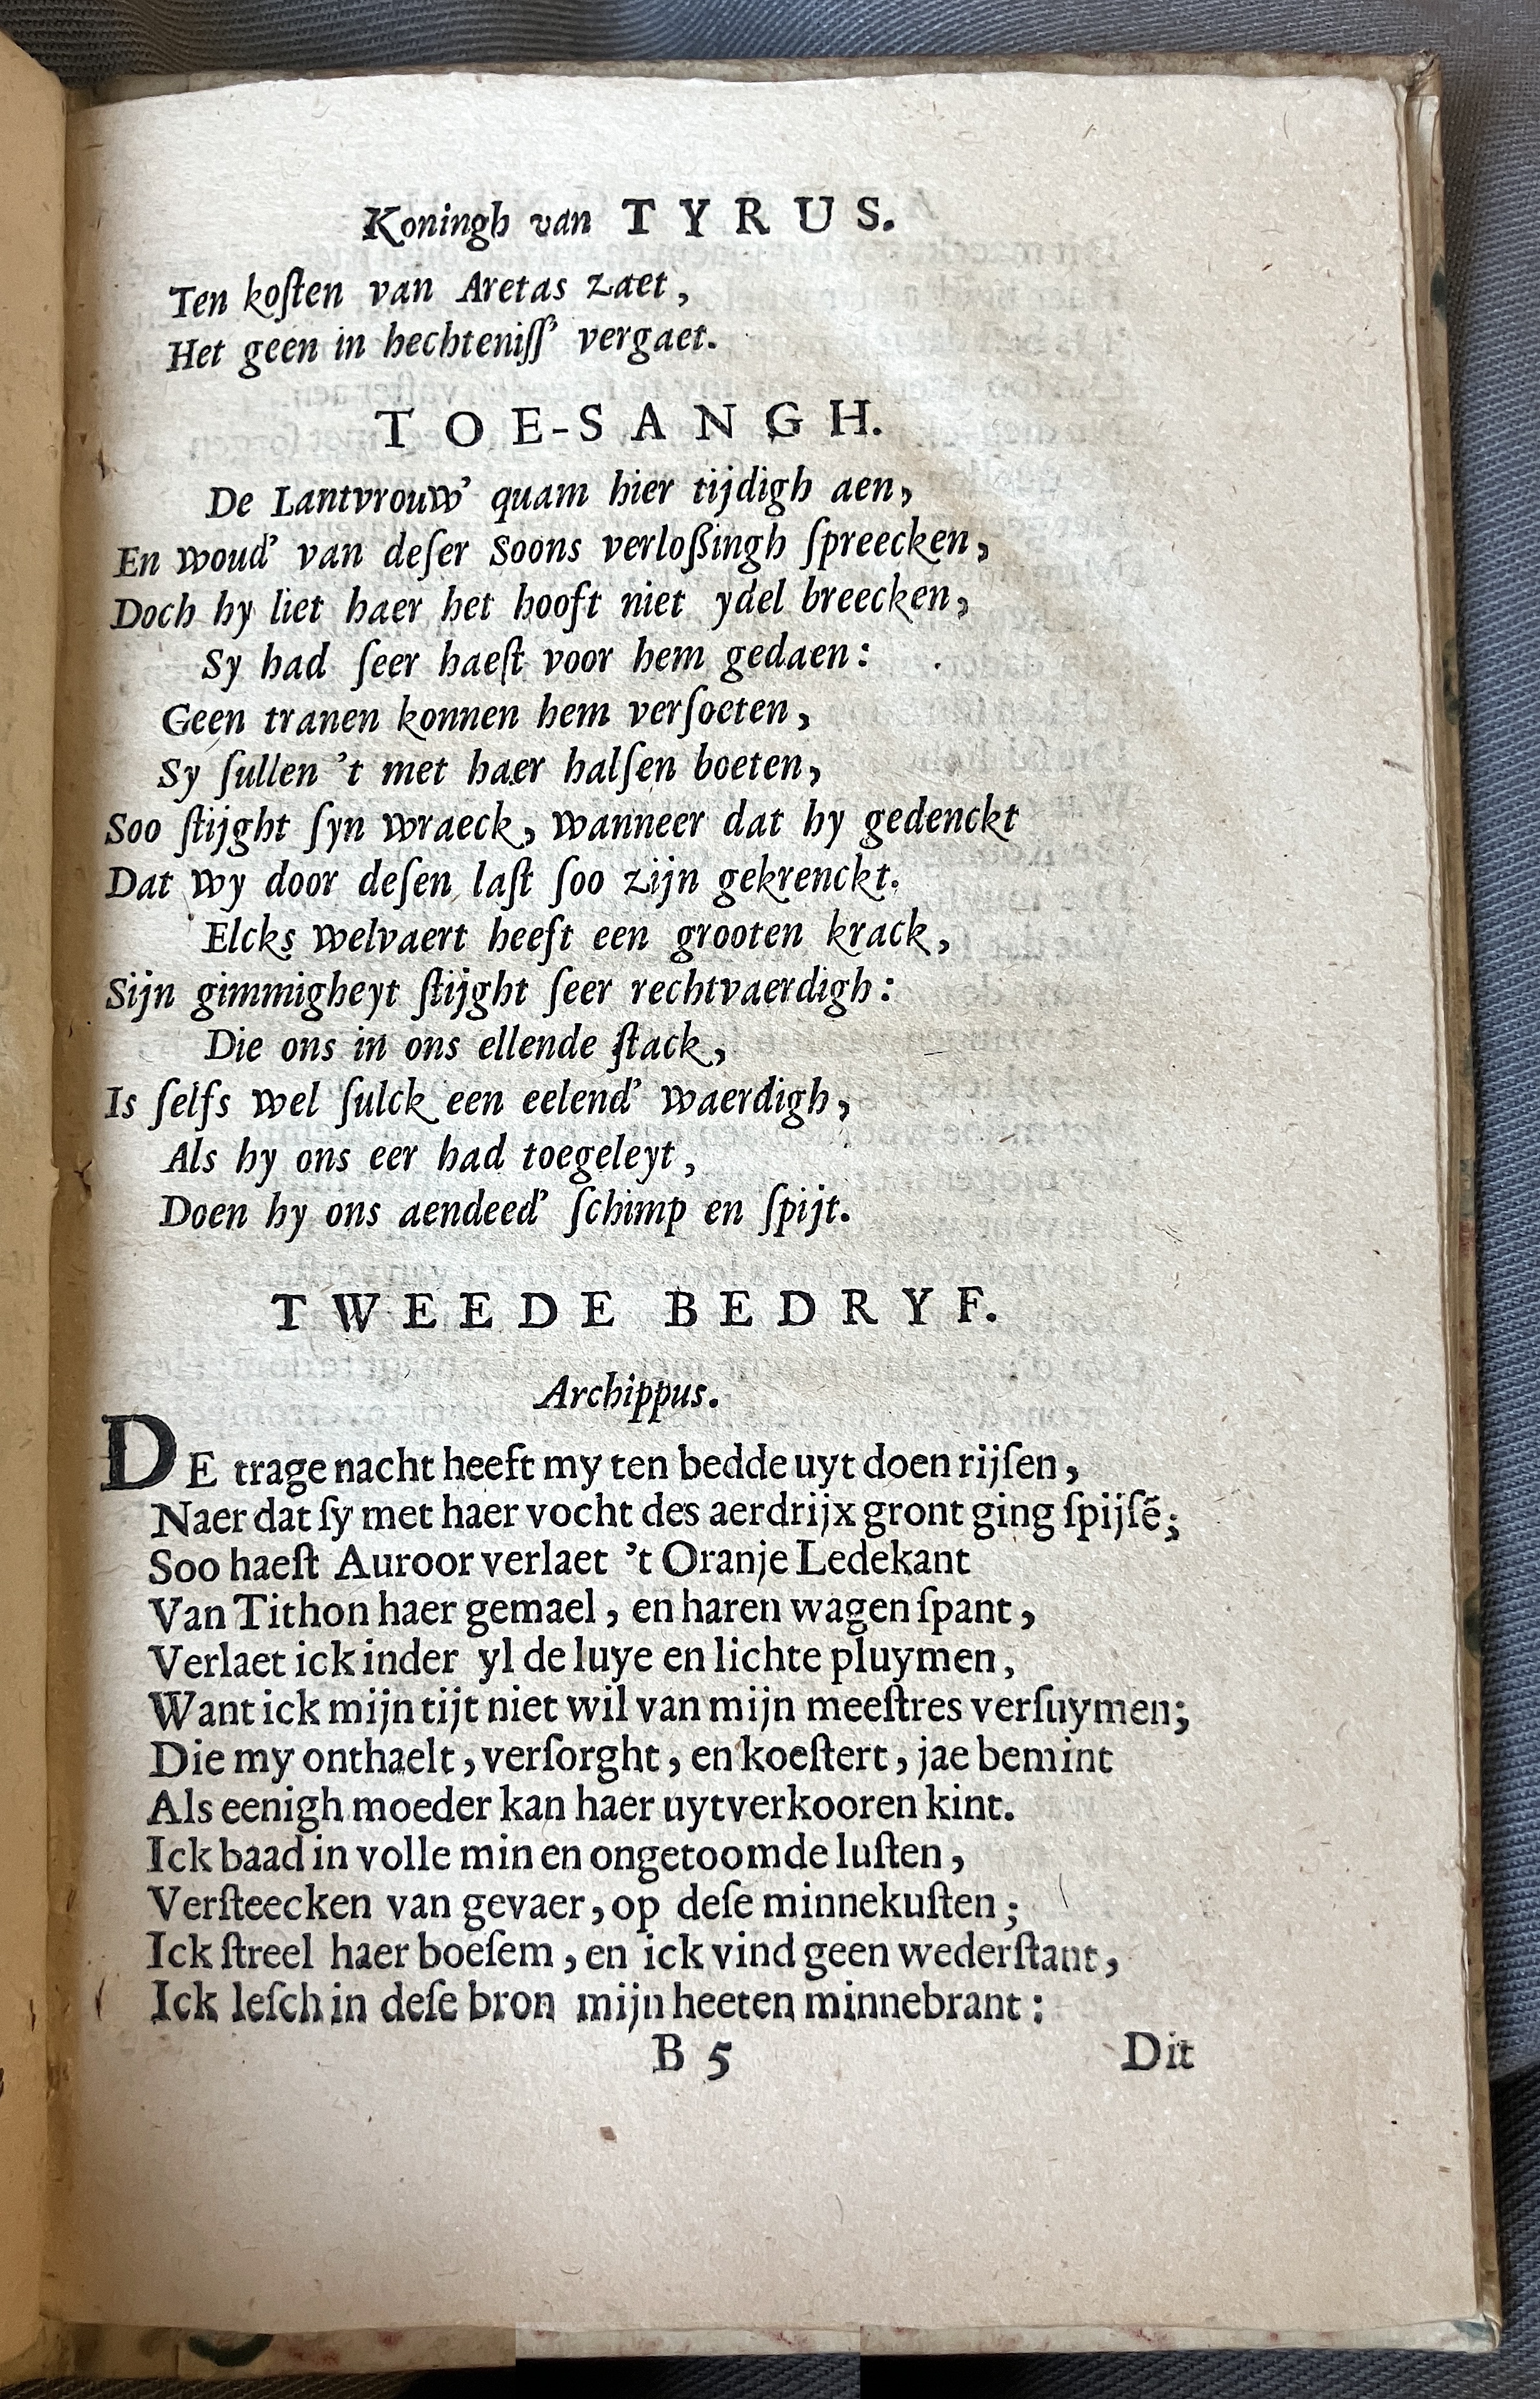 Koningh van TYRUS.
Ten koſten van Aretas zaet,
Het geen in hechteniſſ' vergaet.
TOE-SANGH.
De Lantvrouw' quam hier tijdigh aen,
En woud' van deſer Soons verloßingh ſpreecken,
Doch hy liet haer het hooft niet ydel breecken,
Sy had ſeer haeſt voor hem gedaen:
Geen tranen konnen hem verſoeten,
Sy ſullen 't met haer halſen boeten,
Soo ſtijght ſyn wraeck, wanneer dat hy gedenckt
Dat wy door deſen laſt ſoo zijn gekrenckt.
Elcks welvaert heeft een grooten krack,
Sijn gimmigheyt ſtijght ſeer rechtvaerdigh:
Die ons in ons ellende ſtack,
Is ſelfs wel ſulck een eelend' waerdigh,
Als hy ons eer had toegeleyt,
Doen hy ons aendeed' ſchimp en ſpijt.
TWEEDE BEDRYF.
Archippus.
DE trage nacht heeft my ten bedde uyt doen rijſen,
Naer dat ſy met haer vocht des aerdrijx gront ging ſpijſẽ;
Soo haeſt Auroor verlaet 't Oranje Ledekant
Van Tithon haer gemael, en haren wagen ſpant,
Verlaet ick inder yl de luye en lichte pluymen,
Want ick mijn tijt niet wil van mijn meeſtres verſuymen;
Die my onthaelt, verſorght, en koeſtert, jae bemint
Als eenigh moeder kan haer uytverkooren kint.
Ick baad in volle min en ongetoomde luſten,
Verſteecken van gevaer, op deſe minnekuſten;
Ick ſtreel haer boeſem, en ick vind geen wederſtant,
Ick leſch in deſe bron mijn heeten minnebrant:
B 5
Dit